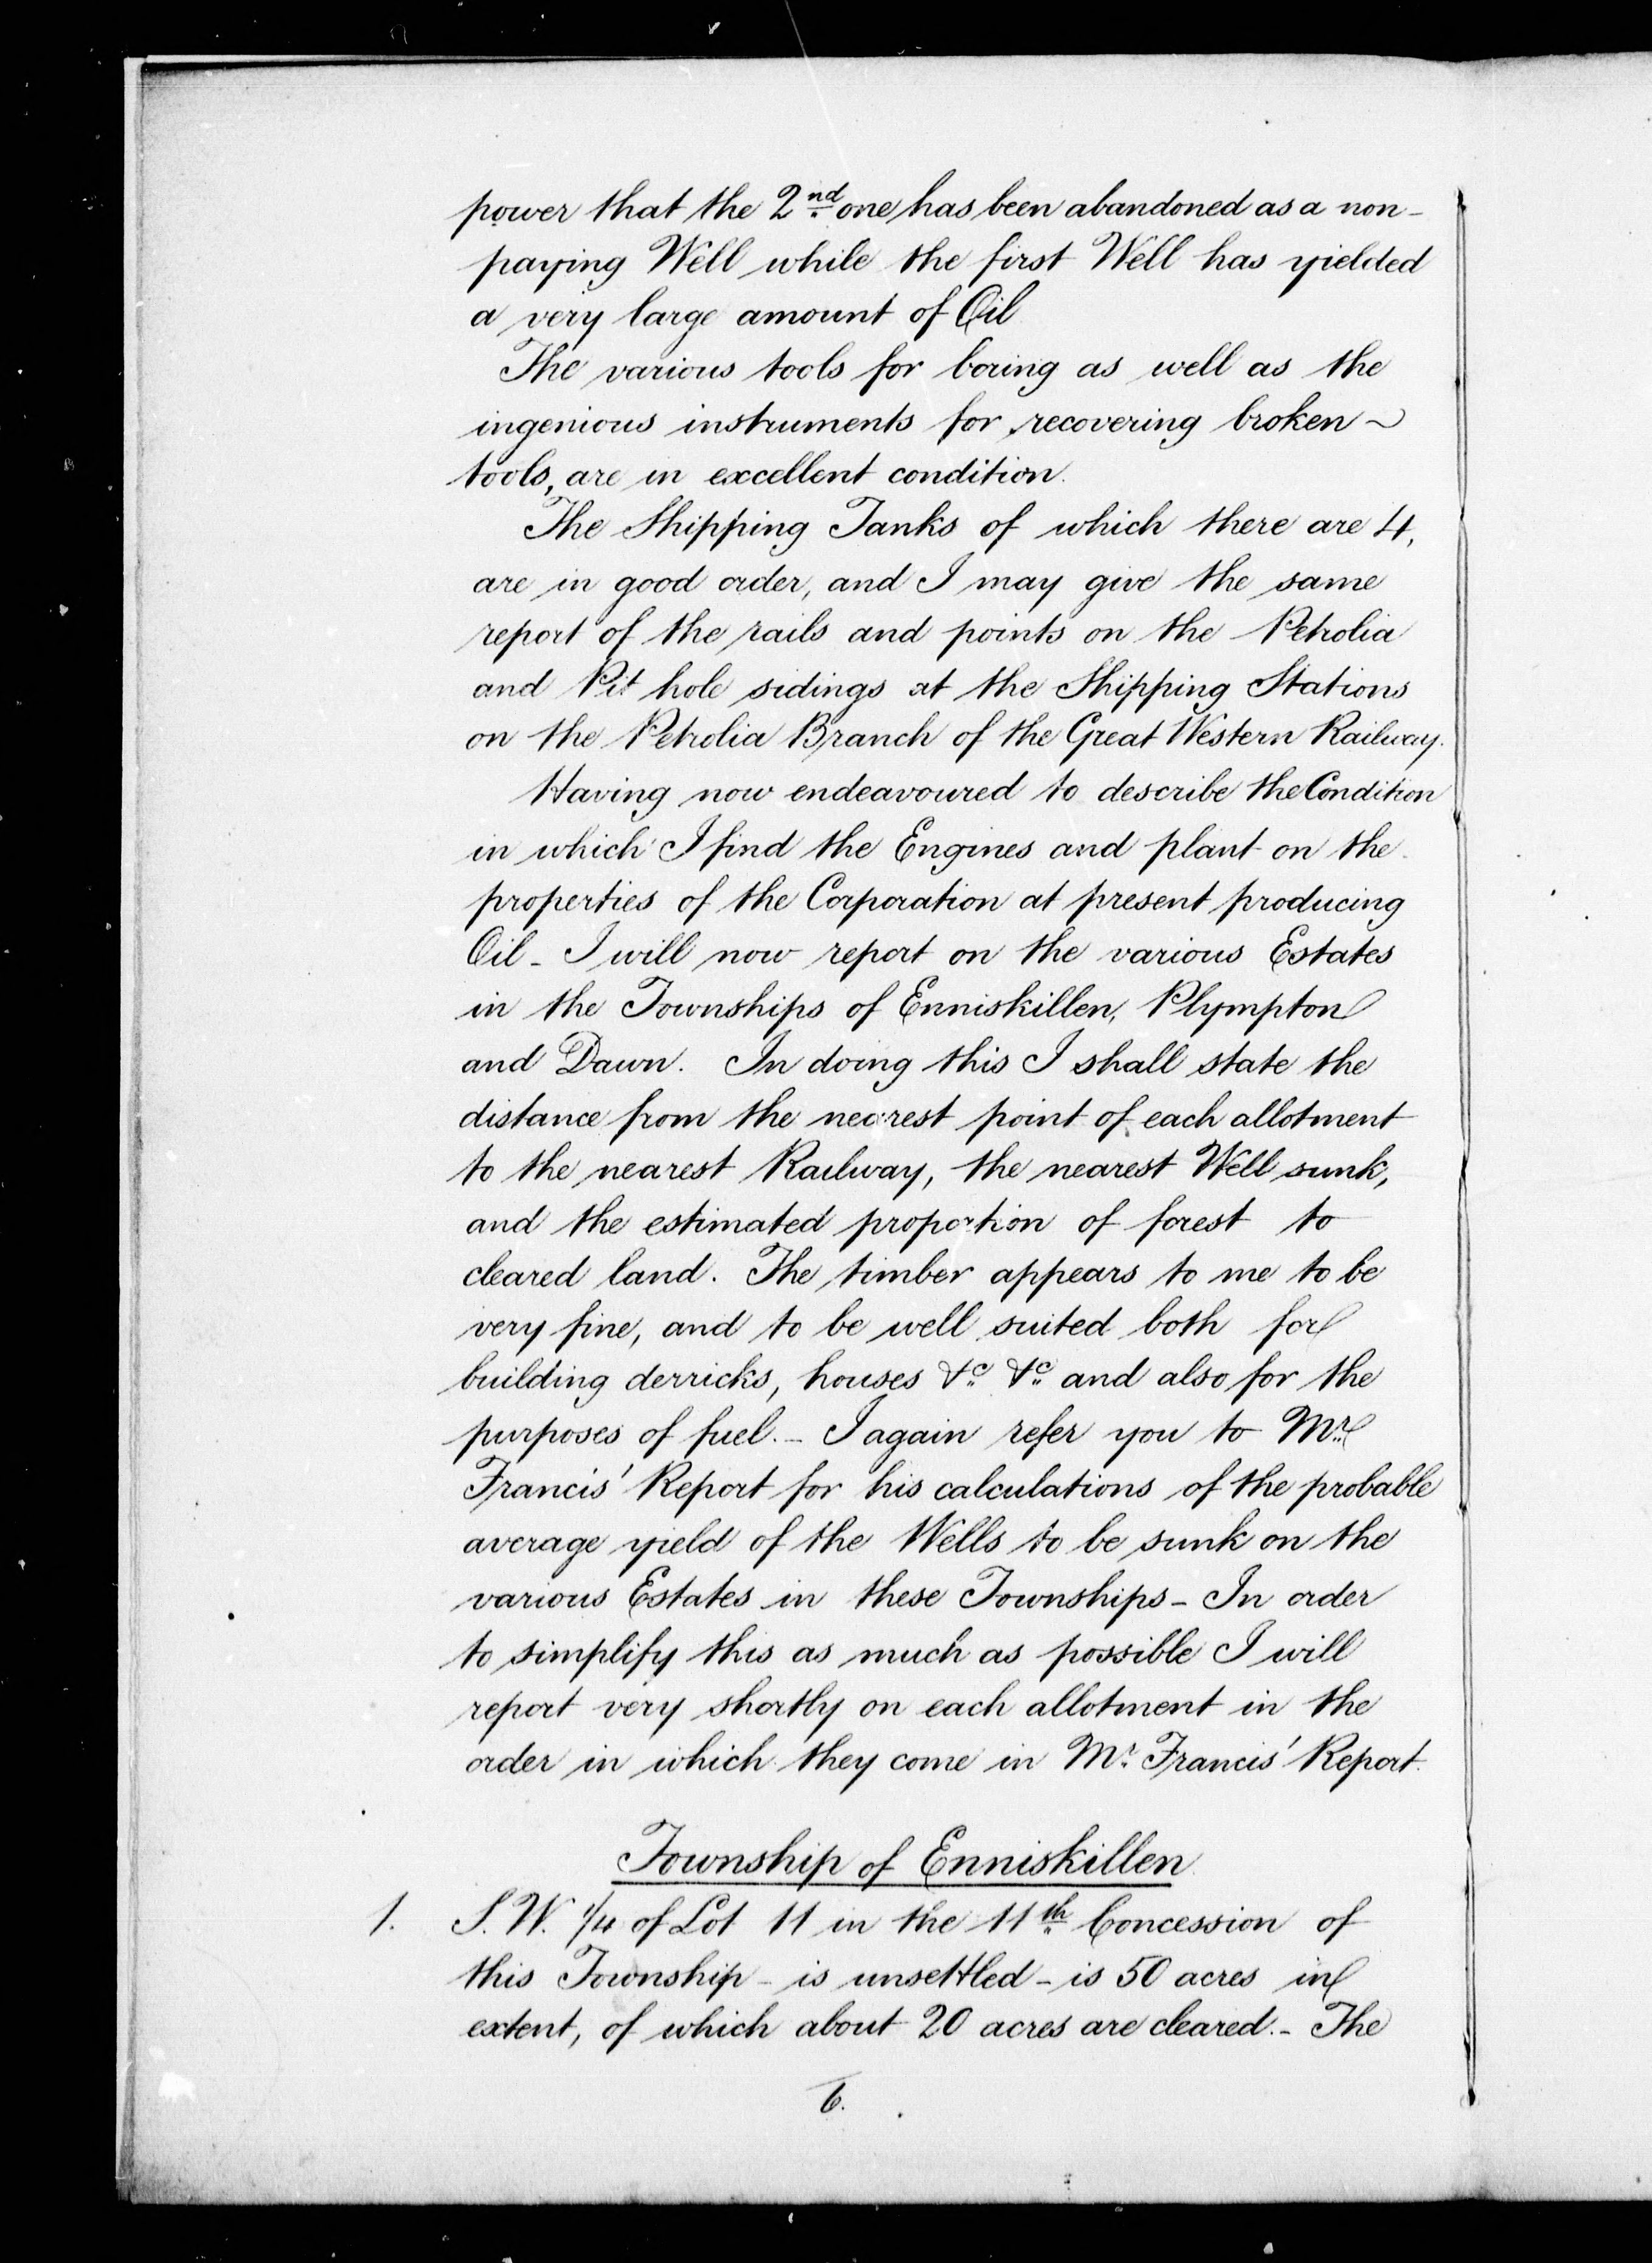 power that the 2nd one has been abandoned as a non-
paying Well while the first Well has yielded
a very large amount of Oil
The various tools for boring as well as the
ingenious instruments for recovering broken ~
tools, are in excellent condition.
The Shipping Tanks of which there are 4,
are in good order, and I may give the same
report of the rails and points on the Petrolia
and Pit hole sidings at the Shipping Stations
on the Petrolia Branch of the Great Western Railway.
Having now endeavoured to describe the Condition
in which I find the Engines and plant on the
properties of the Corporation at present producing
Oil - I will now report on the various Estates
in the Townships of Enniskillen, Plympton
and Dawn. In doing this I shall state the
distance from the nearest point of each allotment
to the nearest Railway, the nearest Well sunk,
and the estimated proportion of forest to
cleared land. The timber appears to me to be
very fine, and to be well suited both for
building derricks, houses &c. &c. and also for the
purposes of fuel. - I again refer you to Mr.
Francis' Report for his calculations of the probable
average yield of the Wells to be sunk on the
various Estates in these Townships - In order
to simplify this as much as possible I will
report very shortly on each allotment in the
order in which they come in Mr. Francis' Report.
Township of Enniskillen
1. S.W. 1/4 of Lot 11 in the 11th Concession of
this Township - is unsettled - is 50 acres in
extent, of which about 20 acres are cleared. - The
6.